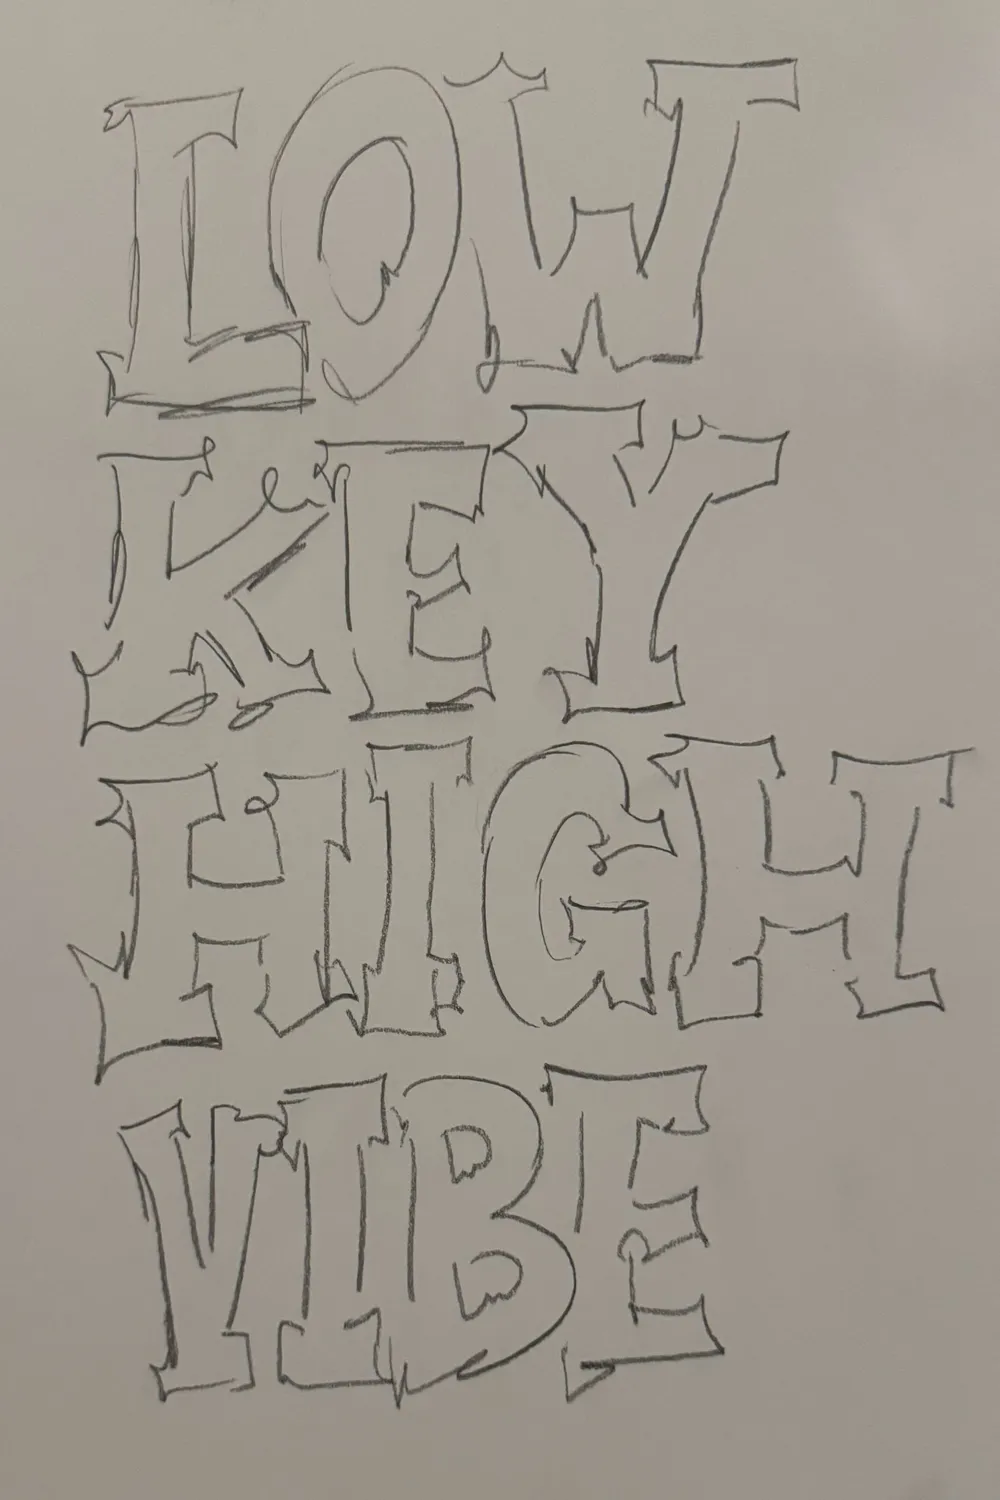 LOW
KEY
HIGH
VIBE